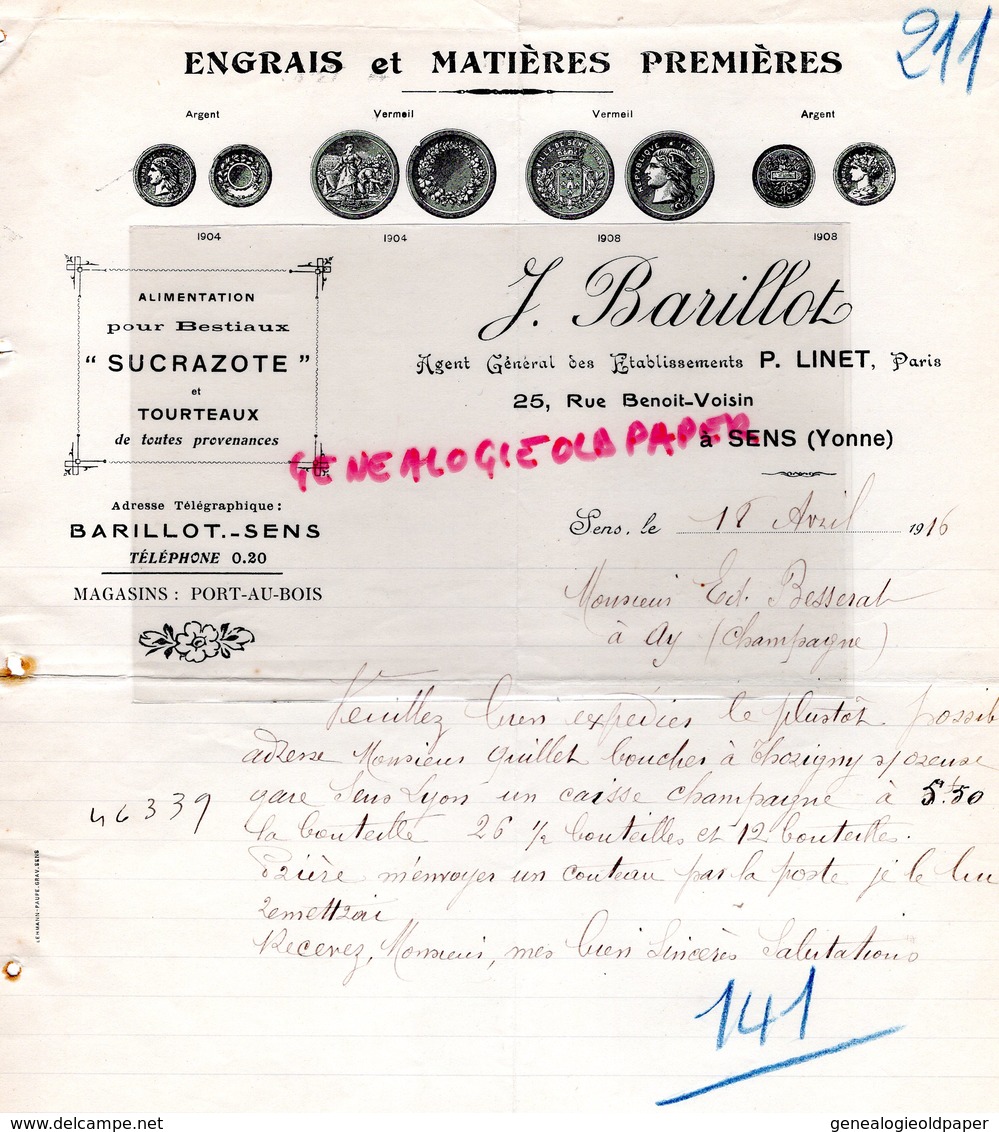 211
ENGRAIS et MATIÈRES PREMIÈRES
Argent Vermeil Vermeil Argent
VILLE DE SENS
1904 1904 1908 1908
ALIMENTATION
pour Bestiaux
" SUCRAZOTE "
et
TOURTEAUX
de toutes provenances
J. Barillot
Agent Général des Etablissements P. LINET, Paris
25, Rue Benoit-Voisin
à SENS (Yonne)
GENEALOGIEOLDPAPER
Adresse Télégraphique :
BARILLOT.-SENS
TÉLÉPHONE 0.20
MAGASINS : PORT-AU-BOIS
Sens, le 18 Avril 1916
Monsieur Ed. Besserat
à Ay (Champagne)
Veuillez bien expedier le plustôt possib
adresse Monsieur Quillet boucher à Thorigny s/ oreuse
gare Sens Lyon un caisse champagne à 5f50
la bouteille 26 1/2 bouteilles et 12 bouteilles.
46339
Prière m'envoyer un couteau par la poste je le lui
remettrai
Recevez, Monsieur, mes bien Sincères Salutations
LEHMANN-FAUFE.GRAV.SENS
141
delcampe.net
genealogieoldpaper